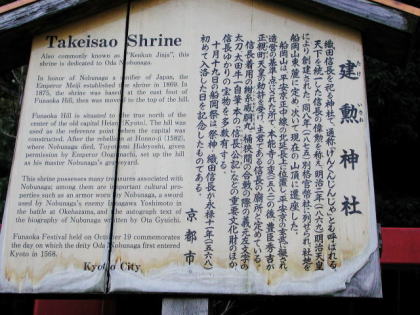 Takeisao Shrine
Also commonly known as "Kenkun Jinja", this
shrine is dedicated to Oda Nobunaga.
In honor of Nobunaga's unifier of Japan, the
Emperor Meiji established the shrine in 1869. In
1875, the shrine was based at the east foot of
Funaoka Hill, then was moved to the top of the hill.
Funaoka Hill is situated to the true north of the
center of the old capital Heian (Kyoto). The hill was
used as the reference point when the capital was
constructed. After the rebellion at Honno-ji (1582),
where Nobunaga died, Toyotomi Hideyoshi, given
permission by Emperor Oogimachi, set up the hill
as his master Nobunaga's graveyard.
This shrine possesses many treasures associated with
Nobunaga; among them are important cultural pro-
perties such as an armor worn by Nobunaga, a sword
used by Nobunaga's enemy Imagawa Yoshimoto in
the battle at Okehazama, and the autograph text of
the biography of Nobunaga written by Ota Gyuichi.
Funaoka Festival held on October 19 commemorates
the day on which the deity Oda Nobunaga first entered
Kyoto in 1568.
Kyoto City
建勲神社
織田信長を祀る神社で、通称「けんくんじんじゃ」とも呼ばれる。
天下を統一した信長の偉勲を称え、明治二年(一八六九)明治天皇
により創建された。同八年(一八七五)別格官幣社に列せられ、社地を
船岡山東麓に定め、次いで現在の山頂に遷座した。
船岡山は、平安京正中線の北延長上に位置し、平安京の玄武に擬され、
造営の基準点にされた所で、本能寺の変(一五八二)の後、豊臣秀吉が
正親町天皇の勅許を得、主君である信長の廟所と定めている。
信長着用の紺糸威胴丸、桶狭間の合戦の際の義元左文字の
太刀、太田牛一自筆本の信長公記などの重要文化財のほか、
信長ゆかりの宝物を多数有する。
十月十九日の船岡祭は、祭神・織田信長が永禄十一年(一五六八)
初めて入洛した日を記念したものである。
京都市